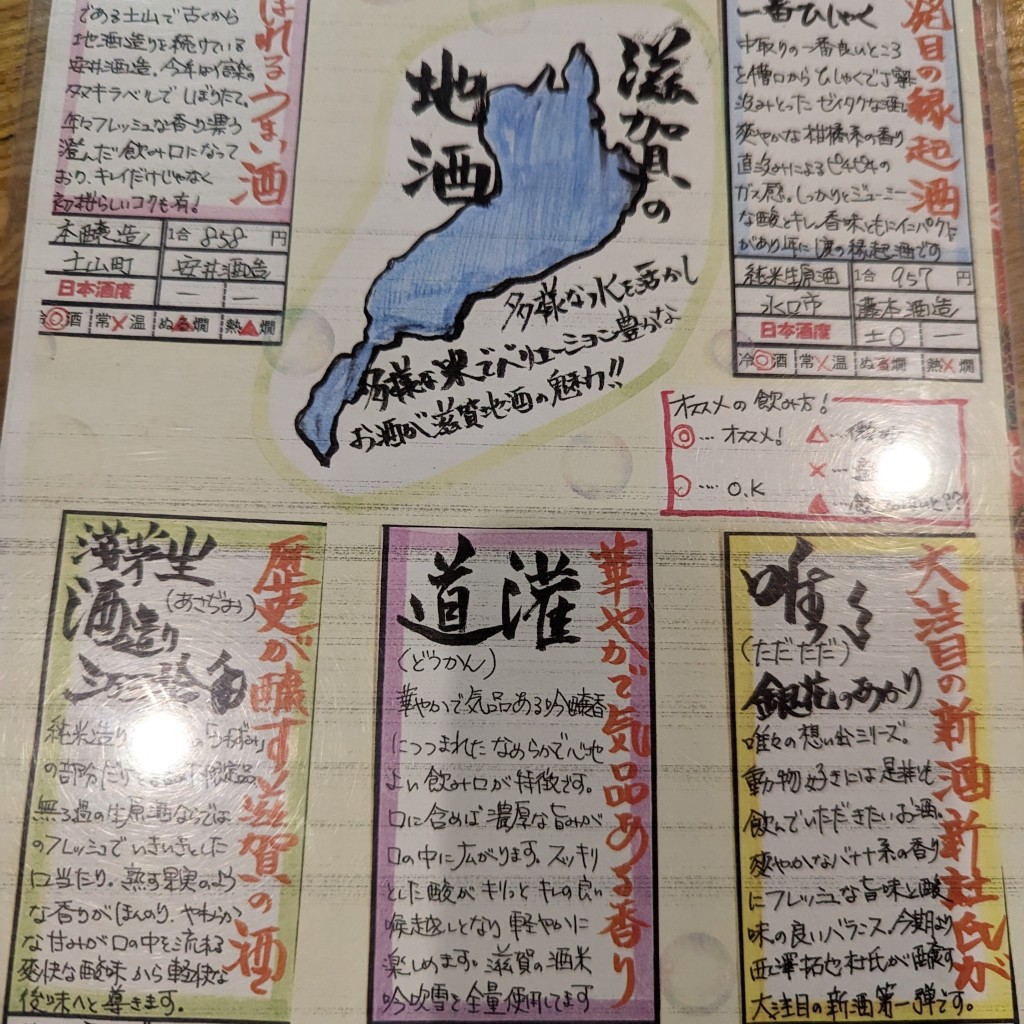 である土山で古くから
地酒造りを続けている
安井酒造。今年は信楽の
タヌキラベルでしぼりたて。
年々フレッシュな香り漂う
澄んだ飲み口になって
おり、キレイだけじゃなく
らしいコクも有!
ほれるうまい酒
本醸造 1合 858 円
土山町 安井酒造
日本酒度 ー ー
冷◎酒 常×温 ぬる燗 熱▲燗
滋賀の
地酒
多様な水を活かし
多様な米でバリエーション豊かな
お酒が滋賀地酒の魅力!!
一番ひしゃく
中取りの一番良いところ
を槽口からひしゃくで丁寧に
汲みとったゼイタクな酒
爽やかな柑橘系の香り
直汲みによるピチピチの
ガス感。しっかりとジューシー
な酸とキレ、香味ともにインパクト
があり年に1度の縁起酒です
発目の縁起酒
純米生原酒 1合 957 円
水口市 藤本酒造
日本酒度 ±0 ー
冷◎酒 常×温 ぬる燗 熱×燗
オススメの飲み方!
◎…オススメ! △…
×…
○…O.K
▲…
浅茅生
(あさぢお)
酒造り
純米造り
の部分だけ 限定品。
無ろ過の生原酒ならでは
のフレッシュでいきいきとした
口当たり。熟す果実のよう
な香りがほんのり、やわらか
な甘みが口の中を流れる
爽快な酸味から軽快な
後味へと導きます。
歴史が醸す滋賀の酒
道灌
(どうかん)
華やかで気品ある吟醸香
につつまれたなめらかで心地
よい飲み口が特徴です。
口に含めば濃厚な旨みが
口の中に広がります。スッキリ
とした酸がキリっとキレの良い
喉越しとなり軽やかに
楽しめます。滋賀の酒米
吟吹雪を全量使用してます
華やかで気品ある香り
唯々
(ただただ)
銀花のあかり
唯々の想い出シリーズ。
動物好きには是非も
飲んでいただきたいお酒。
爽やかなバナナ系の香り
にフレッシュな旨味と酸
味の良いバランス。今期より
西澤拓也杜氏が醸す
大注目の新酒第一弾です。
大注目の新酒新杜氏が